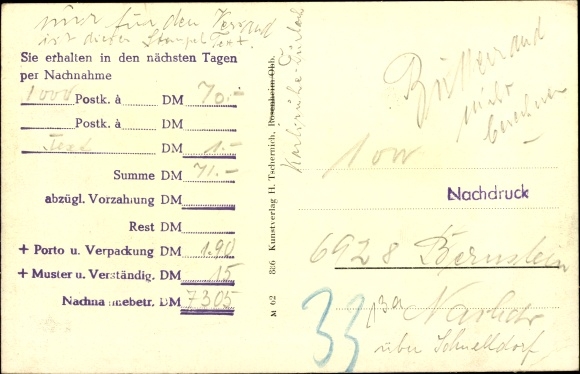 nur für den Versand
ist dieser Stempel Text.
Sie erhalten in den nächsten Tagen
per Nachnahme
1000 Postk. à DM 70.-
Postk. à DM
Text DM 1.-
Summe DM 71.-
abzügl. Vorzahlung DM
Rest DM
+ Porto u. Verpackung DM 1.90
+ Muster u. Verständig. DM 15
Nachnahmebetr. DM 7305
M 62 886 Kunstverlag H. Tschernich, Rosenheim Obb.
Karlsruhe-Durlach
Büttenrand
nicht
berechnen
1000
Nachdruck
6928 Bernstein
33
über Schnelldorf